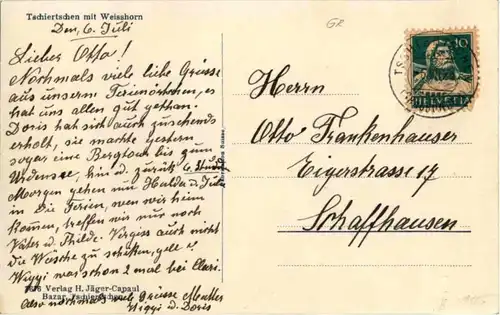 Tschiertschen mit Weisshorn
Den, 6. Juli
Lieber Otto!
Nochmals viele liebe Grüsse
aus unserm Ferienörtchen, es
hat uns allen gut getan.
Doris hat sich auch zusehends
erholt, sie machte gestern
sogar eine Bergtour bis zum
Urdensee, hin u. zurück 6 Stunden
Morgen gehen nun Hulda u. Juli
in die Ferien, wenn wir heim
kommen, treffen wir nur noch
Vater u. Thilde. Vergiss auch nicht
die Wäsche zu schicken, gell!
Wiggi war schon 2 mal bei
7878 Verlag H. Jäger-Capaul
Bazar, Tschiertschen
Also nochmals viele Grüsse Mutter
Wiggi u. Doris
GR
10
HELVETIA
Herrn
Otto Frankenhauser
Eigerstrasse 17
Schaffhausen